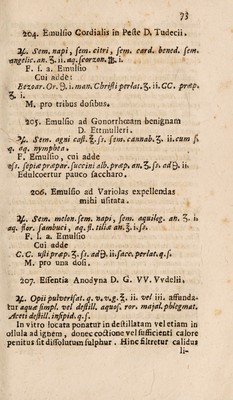 73
204. Emulsio Cordialis in Peste D. Tudecii.
♃. Sem. napi, sem. citri, sem. card. bened. sem.
angelic. an. ʒ. ii. aq. scorzon. ℔. i.
F. s. a. Emulsio
Cui adde:
Bezoar. Or. ℈. i. man. Christi perlat. ʒ. ii. CC. præp.
ʒ. i.
M. pro tribus dosibus.
205. Emulsio ad Gonorrhœam benignam
D. Ettmulleri.
♃. Sem. agni cast. ʒ. ss. sem. cannab. ʒ. ii. cum s.
q. aq. nymphea.
F. Emulsio, cui adde
oss. sepiæ præpar. succini alb. præp. an. ʒ. ss. ad ℈. ii.
Edulcoertur pauco saccharo.
206. Emulsio ad Variolas expellendas
mihi usitata.
♃. Sem. melon. sem. napi, sem. aquileg. an. ʒ. i.
aq. flor. sambuci, aq. fl. tiliæ an. ℥. i. ss.
F. l. a. Emulsio
Cui adde
C. C. usti præp. ʒ. ss. ad ℈. ii. sacc. perlat. q. s.
M. pro una dosi.
207. Essentia Anodyna D. G. VV. Vvdelii.
♃. Opii pulverisat. q. v. v. g. ℥. ii. vel iii. affunda-
tur aquæ simpl. vel destill. aquos. ror. majal. phlegmat.
Aceti destill. insipid. q. s.
In vitro locata ponatur in destillatam vel etiam in
ollula ad ignem, donec coctione vel sufficienti calore
penitus sit dissolutum sulphur. Hinc filtretur calidus
li-